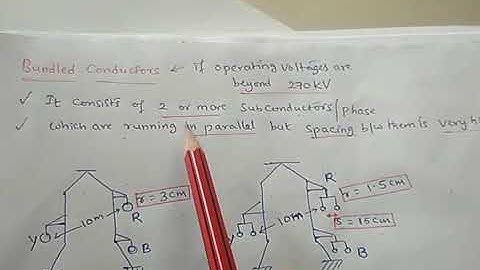 Bundled Conductors ← if operating voltages are
beyond 270kV
✓ It consists of 2 or more subconductors/phase
✓ which are running in parallel but spacing b/w them is very
r = 3cm
R
10m
Y
B
R
r = 1.5cm
10m
S = 15cm
Y
B